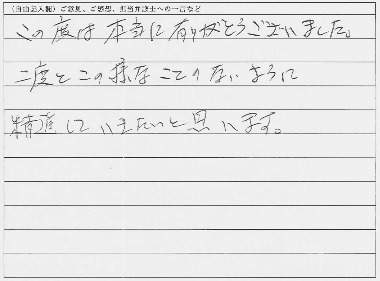 （自由記入欄）ご意見、ご感想、担当弁護士への一言など
この度は本当に有りがとうございました。
二度とこの様なことのないように
精進していきたいと思います。